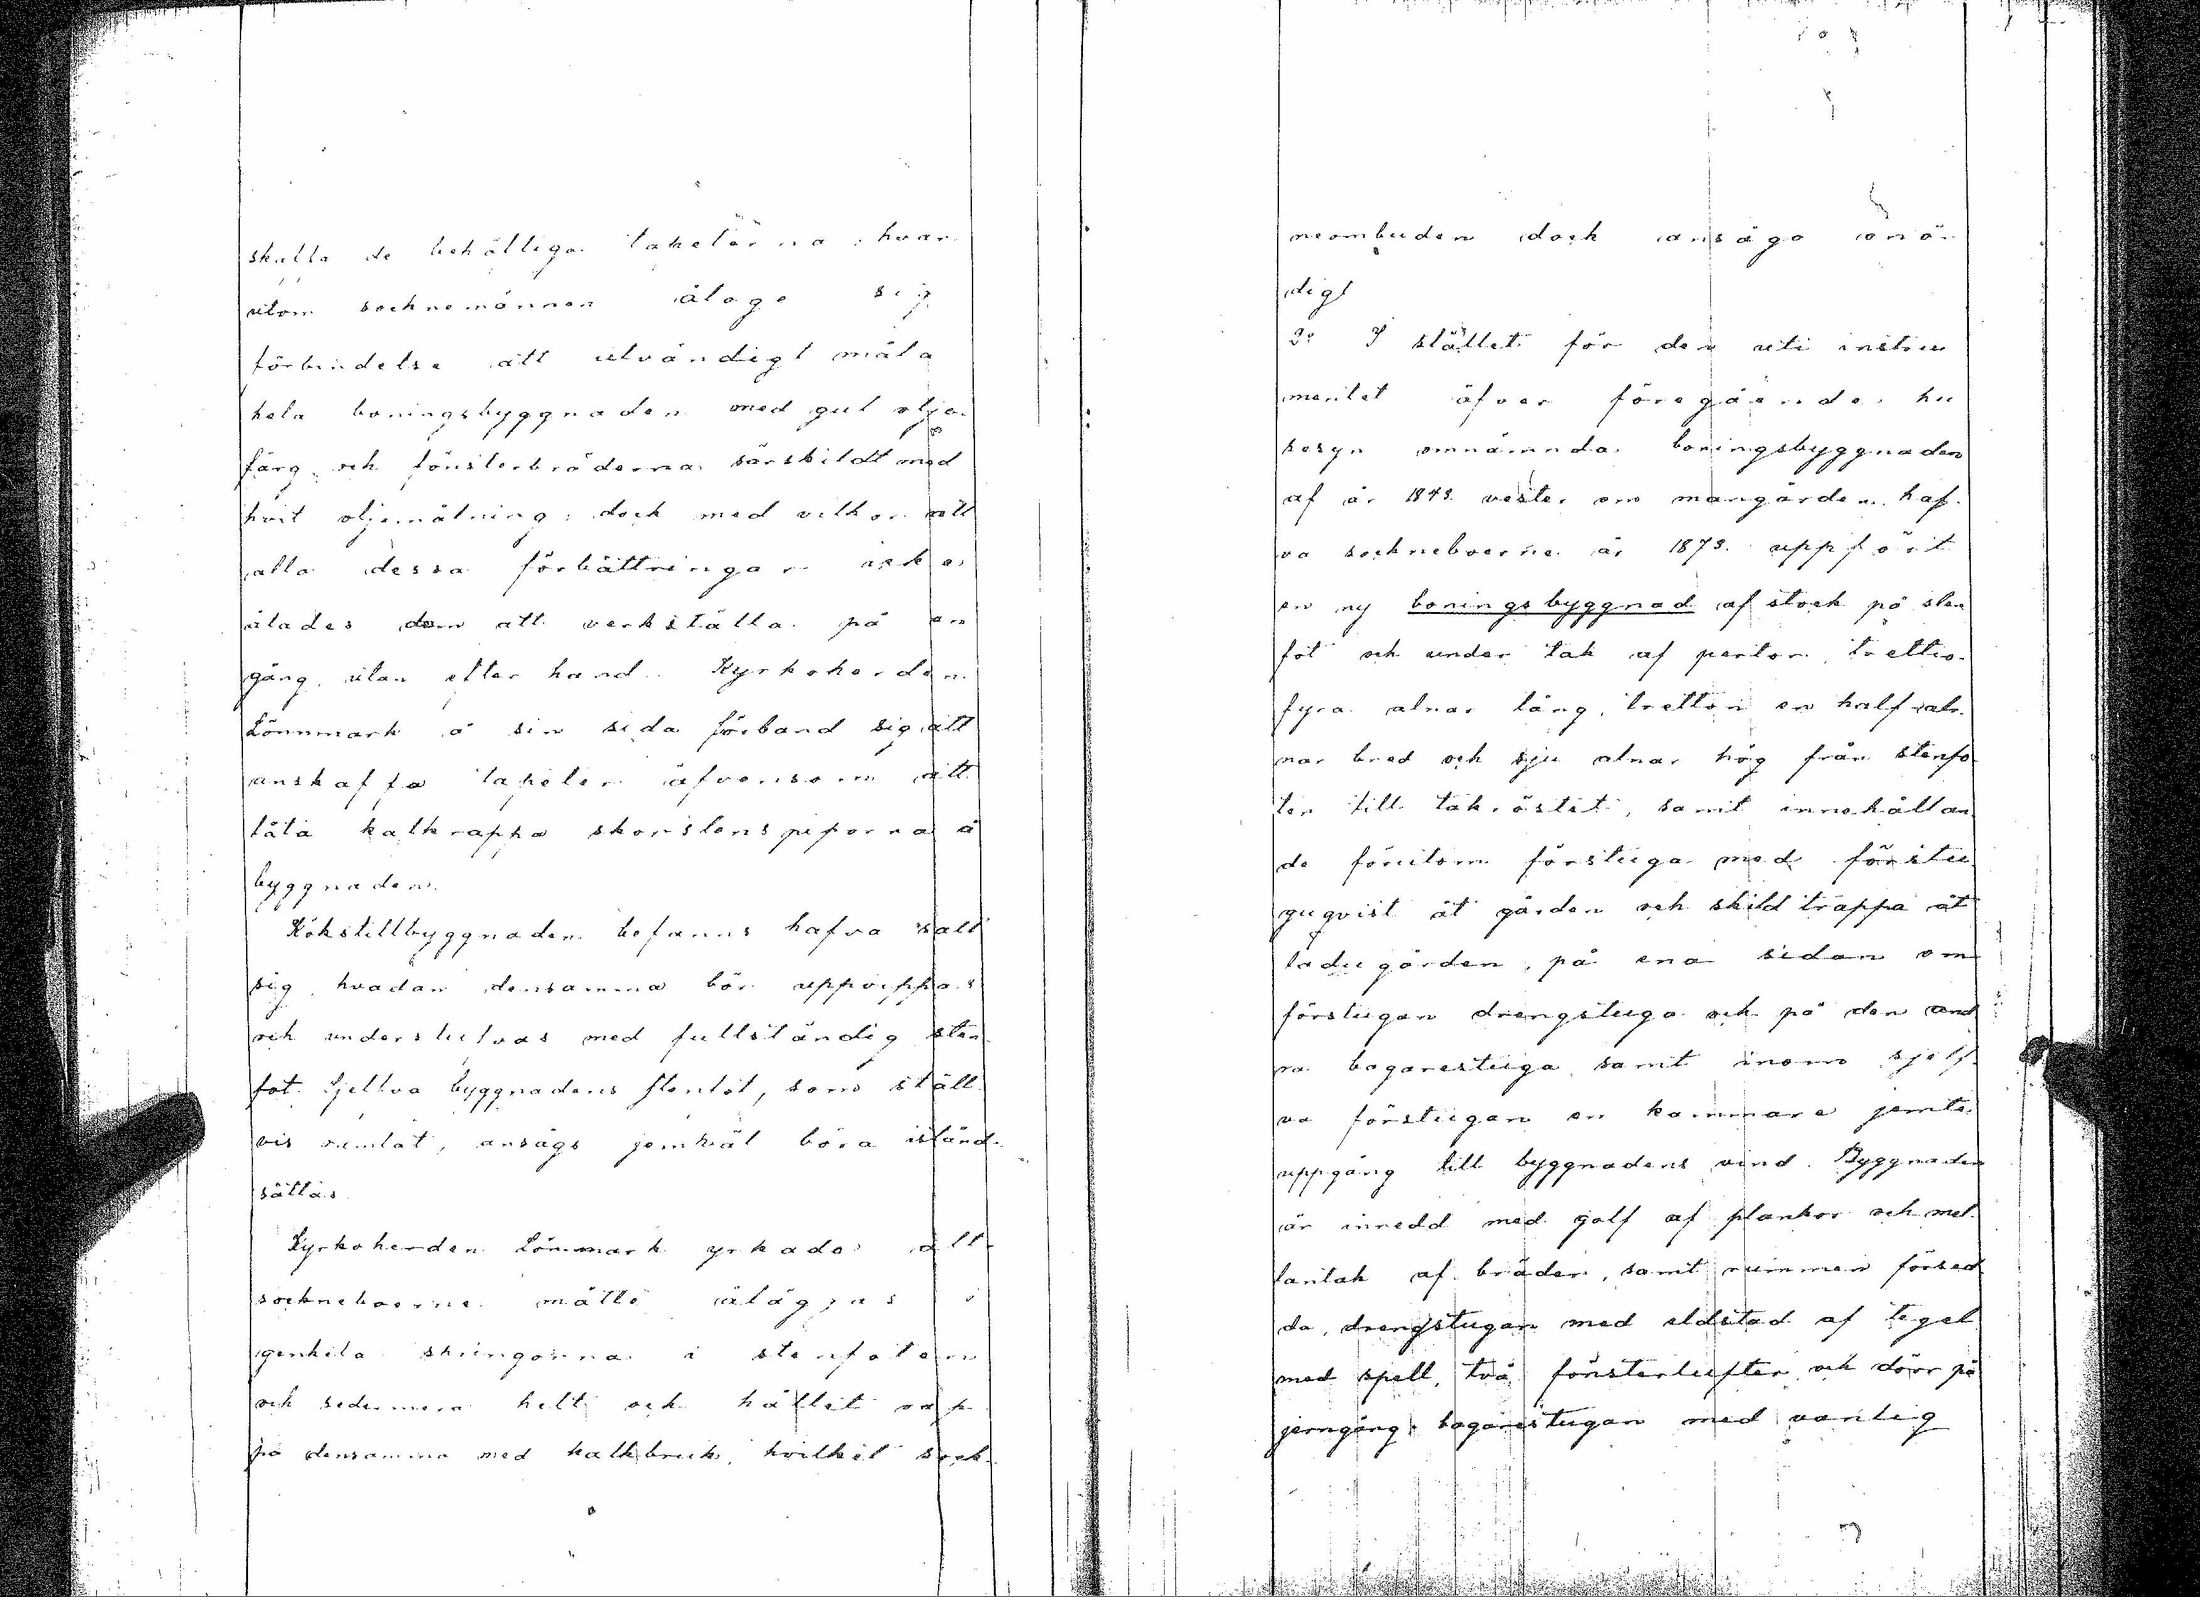 skulle de behöfliga tapeterna, hvar
utom sochnemännen åloge sig
förbindelse att utvändigt måla
hela boningsbyggnaden med gul olje
färg och fönsterbräderna särskildt med
hvit oljemålning; dock med vilkor att
alla dessa förbättringar icke
ålades dem att verkställa på en
gång, utan efter hand. Kyrkoherden
Lönnmark å sin sida förband sig att
anskaffa tapeter äfvensom att
låta kalkrappa skorstenspiporna å
byggnaden.
Kökstillbyggnaden befanns hafva satt
sig, hvadan densamma bör uppvippas
och understufvas med fullständig sten
fot. Sjelfva byggnadens stenfot, som ställ
vis remlat, ansågs jemväl böra istånd-
sättas.
Kyrkoherden Lönnmark yrkade att
sockneboerne måtte åläggas i
genkila skringorna i stenfoten
och sedermera helt och hållit rap
pa densamma med kalkbruk, hvilket sock-
neombuden dock ansågo onö-
digt
2o I stället för den uti instru
mentet öfver föregående hu
sesyn omnämnda boningsbyggnaden
af år 1843 vester om mangården haf-
va sockneboerne år 1873 uppfört
en ny boningsbyggnad af stock på sten
fot och under tak af pertor, trettio-
fyra alnar lång, tretton en half al-
nar bred och sju alnar hög från stenfo
ten till takröstet, samt innehållan
de förutom förstuga med förstu
guqvist åt gården och skild trappa åt
ladugården, på ena sidan om
förstugan drengstuga och på den and
ra bagarestuga samt inom sjelf
va förstugan en kammare jemte
uppgång till byggnadens vind. Byggnaden
är inredd med golf af plankor och mel
lantak af bräder, samt rummen försed
da, drengstugan med eldstad af tegel
med spell, två fönsterlufter och dörr på
jerngång, bagarestugan med vanlig